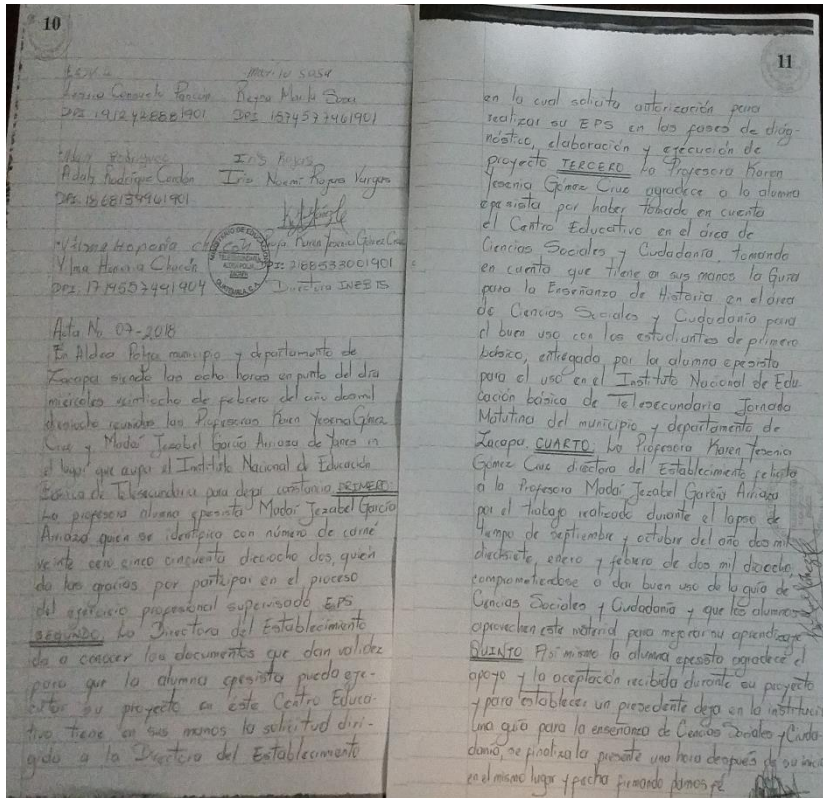 10
Marilú Sosa
Consuelo Reyna Marilú Sosa
DPI 1912428881901 DPI 1574577461901
Rodríguez Iris Rojas
Adaly Rodríguez Cordón Iris Noemí Rojas Vargas
DPI: 1868134961901
Vilma Hernaria ch Profa. Karen Yesenia Gómez Cruz
Vilma Chacón DPI: 2188533001901
DPI: 1714557441904 Directora INEBTS
Acta No 07-2018
En Aldea municipio y departamento de
Zacapa siendo las ocho horas en punto del día
miércoles veintiocho de febrero del año dos mil
dieciocho reunidos las Profesoras Karen Yesenia Gómez
Cruz y Madaí Jezabel García Arriaza de Yanes en
el lugar que ocupa el Instituto Nacional de Educación
Básica de Telesecundaria para dejar constancia PRIMERO:
La profesora alumna epesista Madaí Jezabel García
Arriaza quien se identifica con número de carné
veinte cero cinco cincuenta dieciocho dos, quien
da las gracias por participar en el proceso
del ejercicio profesional supervisado EPS
SEGUNDO: La Directora del Establecimiento
da a conocer los documentos que dan validez
para que la alumna epesista pueda eje-
cutar su proyecto en este Centro Educa-
tivo tiene en sus manos la solicitud diri-
gido a la Directora del Establecimiento
11
en la cual solicita autorización para
realizar su EPS en las fases de diag-
nóstico, elaboración y ejecución de
proyecto TERCERO La Profesora Karen
Yesenia Gómez Cruz agradece a la alumna
epesista por haber tomado en cuenta
el Centro Educativo en el área de
Ciencias Sociales y Ciudadanía, tomando
en cuenta que tiene en sus manos la Guía
para la Enseñanza de Historia en el área
de Ciencias Sociales y Ciudadanía para
el buen uso con los estudiantes de primero
básico, entregado, por la alumna epesista
para el uso en el Instituto Nacional de Edu
cación básica de Telesecundaria Jornada
Matutina del municipio y departamento de
Zacapa. CUARTO: La Profesora Karen Yesenia
Gómez Cruz directora del Establecimiento felicita
a la Profesora Madaí Jezabel García Arriaza
por el trabajo realizado durante el lapso de
tiempo de septiembre y octubre del año dos mil
diecisiete, enero y febrero de dos mil dieciocho,
comprometiendose a dar buen uso de la guía de
Ciencias Sociales y Ciudadanía y que los alumnos
aprovechen este material para mejorar su aprendizaje
QUINTO Así mismo la alumna epesista agradece el
apoyo y la aceptación recibida durante su proyecto
y para establecer un precedente deja en la instituci
una guía para la enseñanza de Ciencias Sociales y Ciuda
danía, se finaliza la presente una hora después de su inici
en el mismo lugar y fecha firmando damos fé